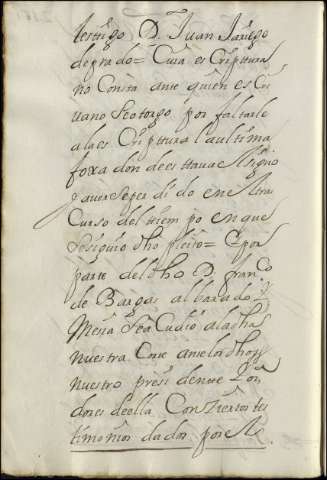 testigo D. Juan Jañego
de prado = Cuia escriptura
no Consta ante quien es Cri
uano se otorgo por faltarle
a la escriptura la ultima
foxa donde estaua el signo
y auerse perdido en el tras
Curso del tiempo en que
se siguio dho pleito = E por
parte del dho D. Franco
de Bargas albarado y
Mesia se acudio a la dha
nuestra Corte ante los dhos
nuestro presidente y oi
dores de ella Con ziertos tes
timonios dados por el